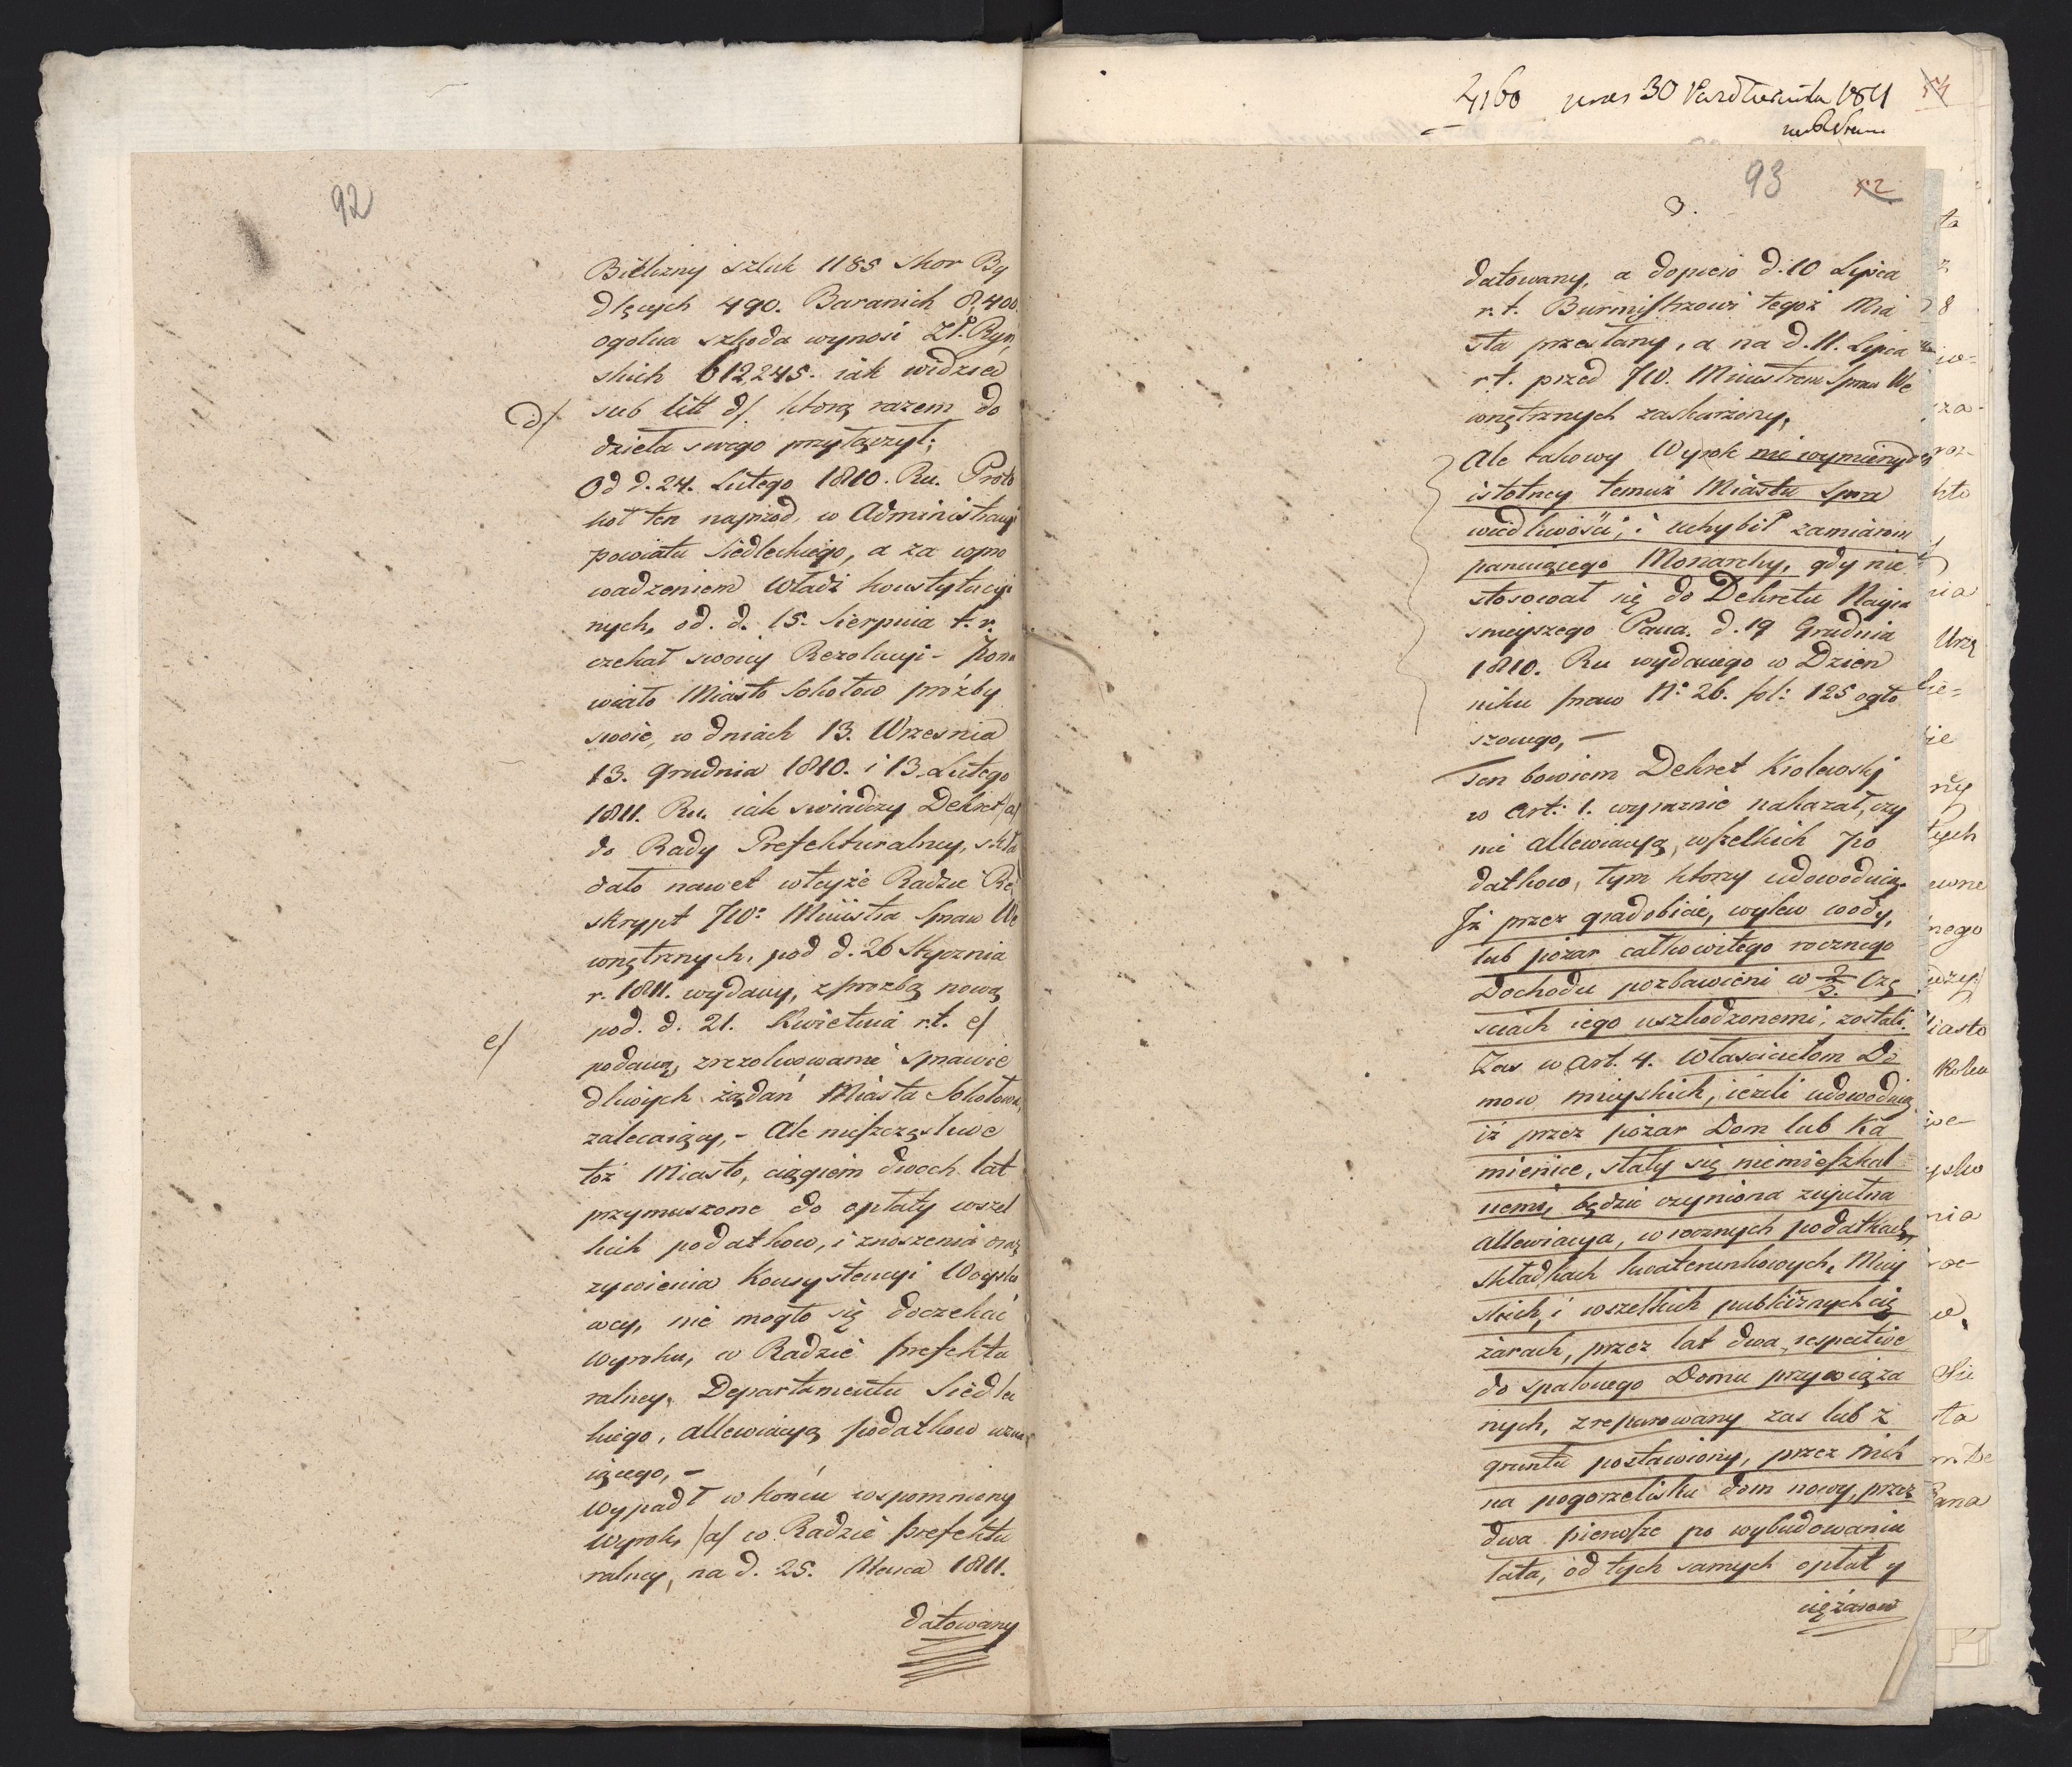 92
Bielizny sztuk 1185 skor By
dlęcych 490. Baranich 8,400.
ogolna szkoda wynosi Zł. Ryń
skich 612,245. iak widzieć
d/ sub litt d/ którą razem do
dzieła swego przyłączył;
Od d. 24. Lutego 1810. Ru. Proto
koł ten naprzod, w Administracyi
powiatu Siedleckiego, a za wpro
wadzeniem Władz konstytucyi
nych, od. d. 15. Sierpnia t. r.
czekał swoiy Rezolucyi - Pona
wiało Miasto Sokołow prózby
swoie, w dniach 13. Wrzesnia
13. Grudnia 1810. i 13. Lutego
1811. Ru. iak swiadczy Dekret /a/
do Rady Prefekturalney, skła
dało nawet w teyże Radzie Re
skrypt JW: Ministra Spraw We
wnętrznych, pod d. 26 Stycznia
r. 1811. wydany, z prozbą nową
e/ pod. d. 21. Kwietnia r.t. e/
podaną, zrezolwowanie sprawie
dliwych żądań Miasta Sokołowa,
zalecaiący, - Ale nieszczęsliwe
toż Miasto, ciągiem dwoch lat
przymuszone do opłaty wszel
kich podatkow, i znoszenia oraz
zywienia Konsystencyi Woysko
wey, nie mogło się doczekać
Wyroku, w Radzie prefektu
ralney, Departamentu Siedlec
kiego, allewiacyą podatkow uzna
iącego, -
Wypadł w końcu wspomniony
Wyrok, /a/ w Radzie prefektu
ralney, na d. 25. Marca 1811.
datowany
4160 30 Października 1811 54
93 52
3.
datowany, a dopiero d. 10 Lipca
r.t. Burmistrzowi tegoż Mia
sta przesłany, a na d. 11. Lipca
r.t. przed JW. Ministrem Spraw We
wnętrznych zaskarżony,
Ale takowy Wyrok nie wymierzył
istotney temuż Miastu spra
wiedliwości, i uchybił zamiarom
panuiącego Monarchy, gdy nie
stosował się do Dekretu Nayia
snieyszego Pana. d. 19 Grudnia
1810. Ru wydanego w Dzien
niku praw N: 26. fol: 125 ogło
szonego, -
Ten bowiem Dekret Krolewski
w Art: 1. wyraznie nakazał, czy
nić allewiacyą, wszelkich po
datkow, tym ktorzy udowodnią.
Iż przez gradobicie, wylew wody,
lub pożar całkowitego rocznego
Dochodu pozbawieni w 2/3. Czę
sciach iego uszkodzonemi, zostali.
Zas w Art. 4. Włascicielom Do
mow mieyskich, ieżeli udowodnią
iż przez pożar Dom lub Ka
mienice, stały się niemieszkal
nemi, będzie czyniona zupełna
allewiacya, w rocznych podatkach,
składkach kwaterunkowych, Miey
skich, i wszelkich publicznych cię
żarach, przez lat dwa, respective
do spalonego Domu przywiąza
nych, zreparowany zas lub z
gruntu postawiony, przez nich
na pogorzelisku dom nowy, przez
dwa pierwsze po wybudowaniu
lata, od tych samych opłat y
ciężarow